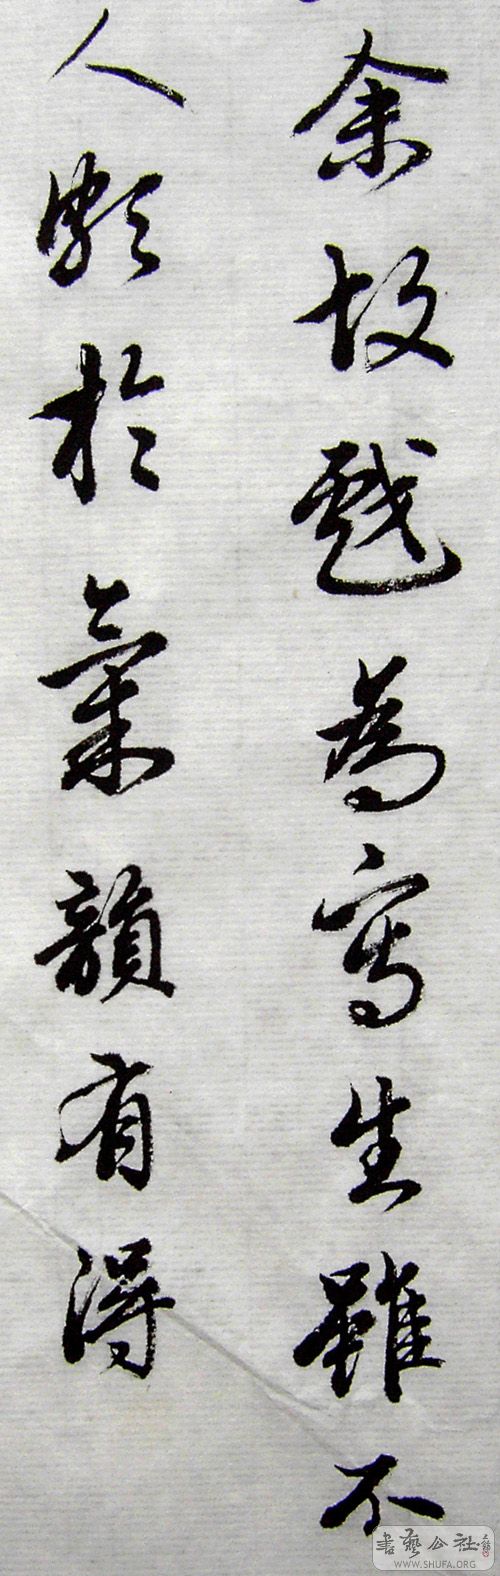 余故戲為寫生雖不
人頗於氣韻有得
書藝公社
WWW.SHUFA.ORG